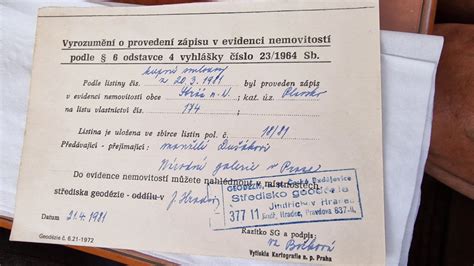 Vyrozumění o provedení zápisu v evidenci nemovitostí
podle § 6 odstavce 4 vyhlášky číslo 23/1964 Sb.
kupní smlouvy
Podle listiny čís. z 20.3.1981 byl proveden zápis
v evidenci nemovitostí obce Stráž n.N. kat. úz.
na listu vlastnictví čís. 174
Listina je uložena ve sbírce listin pol. č. 10/81
Předávající - přejímající manželé Dušákovi
Národní galerie v Praze
Do evidence nemovitostí může nahlédnout v místnostech
střediska geodézie - oddílu v J. Hradci
GEODÉZIE, České Budějovice
Středisko geodézie
Jindřichův Hradec
377 11 Jindř. Hradec, 637-II.
Datum 21.4.1981
Razítko SG a podpis:
Geodézie č. 6.21-1972
Vytiskla Kartografie n. p. Praha